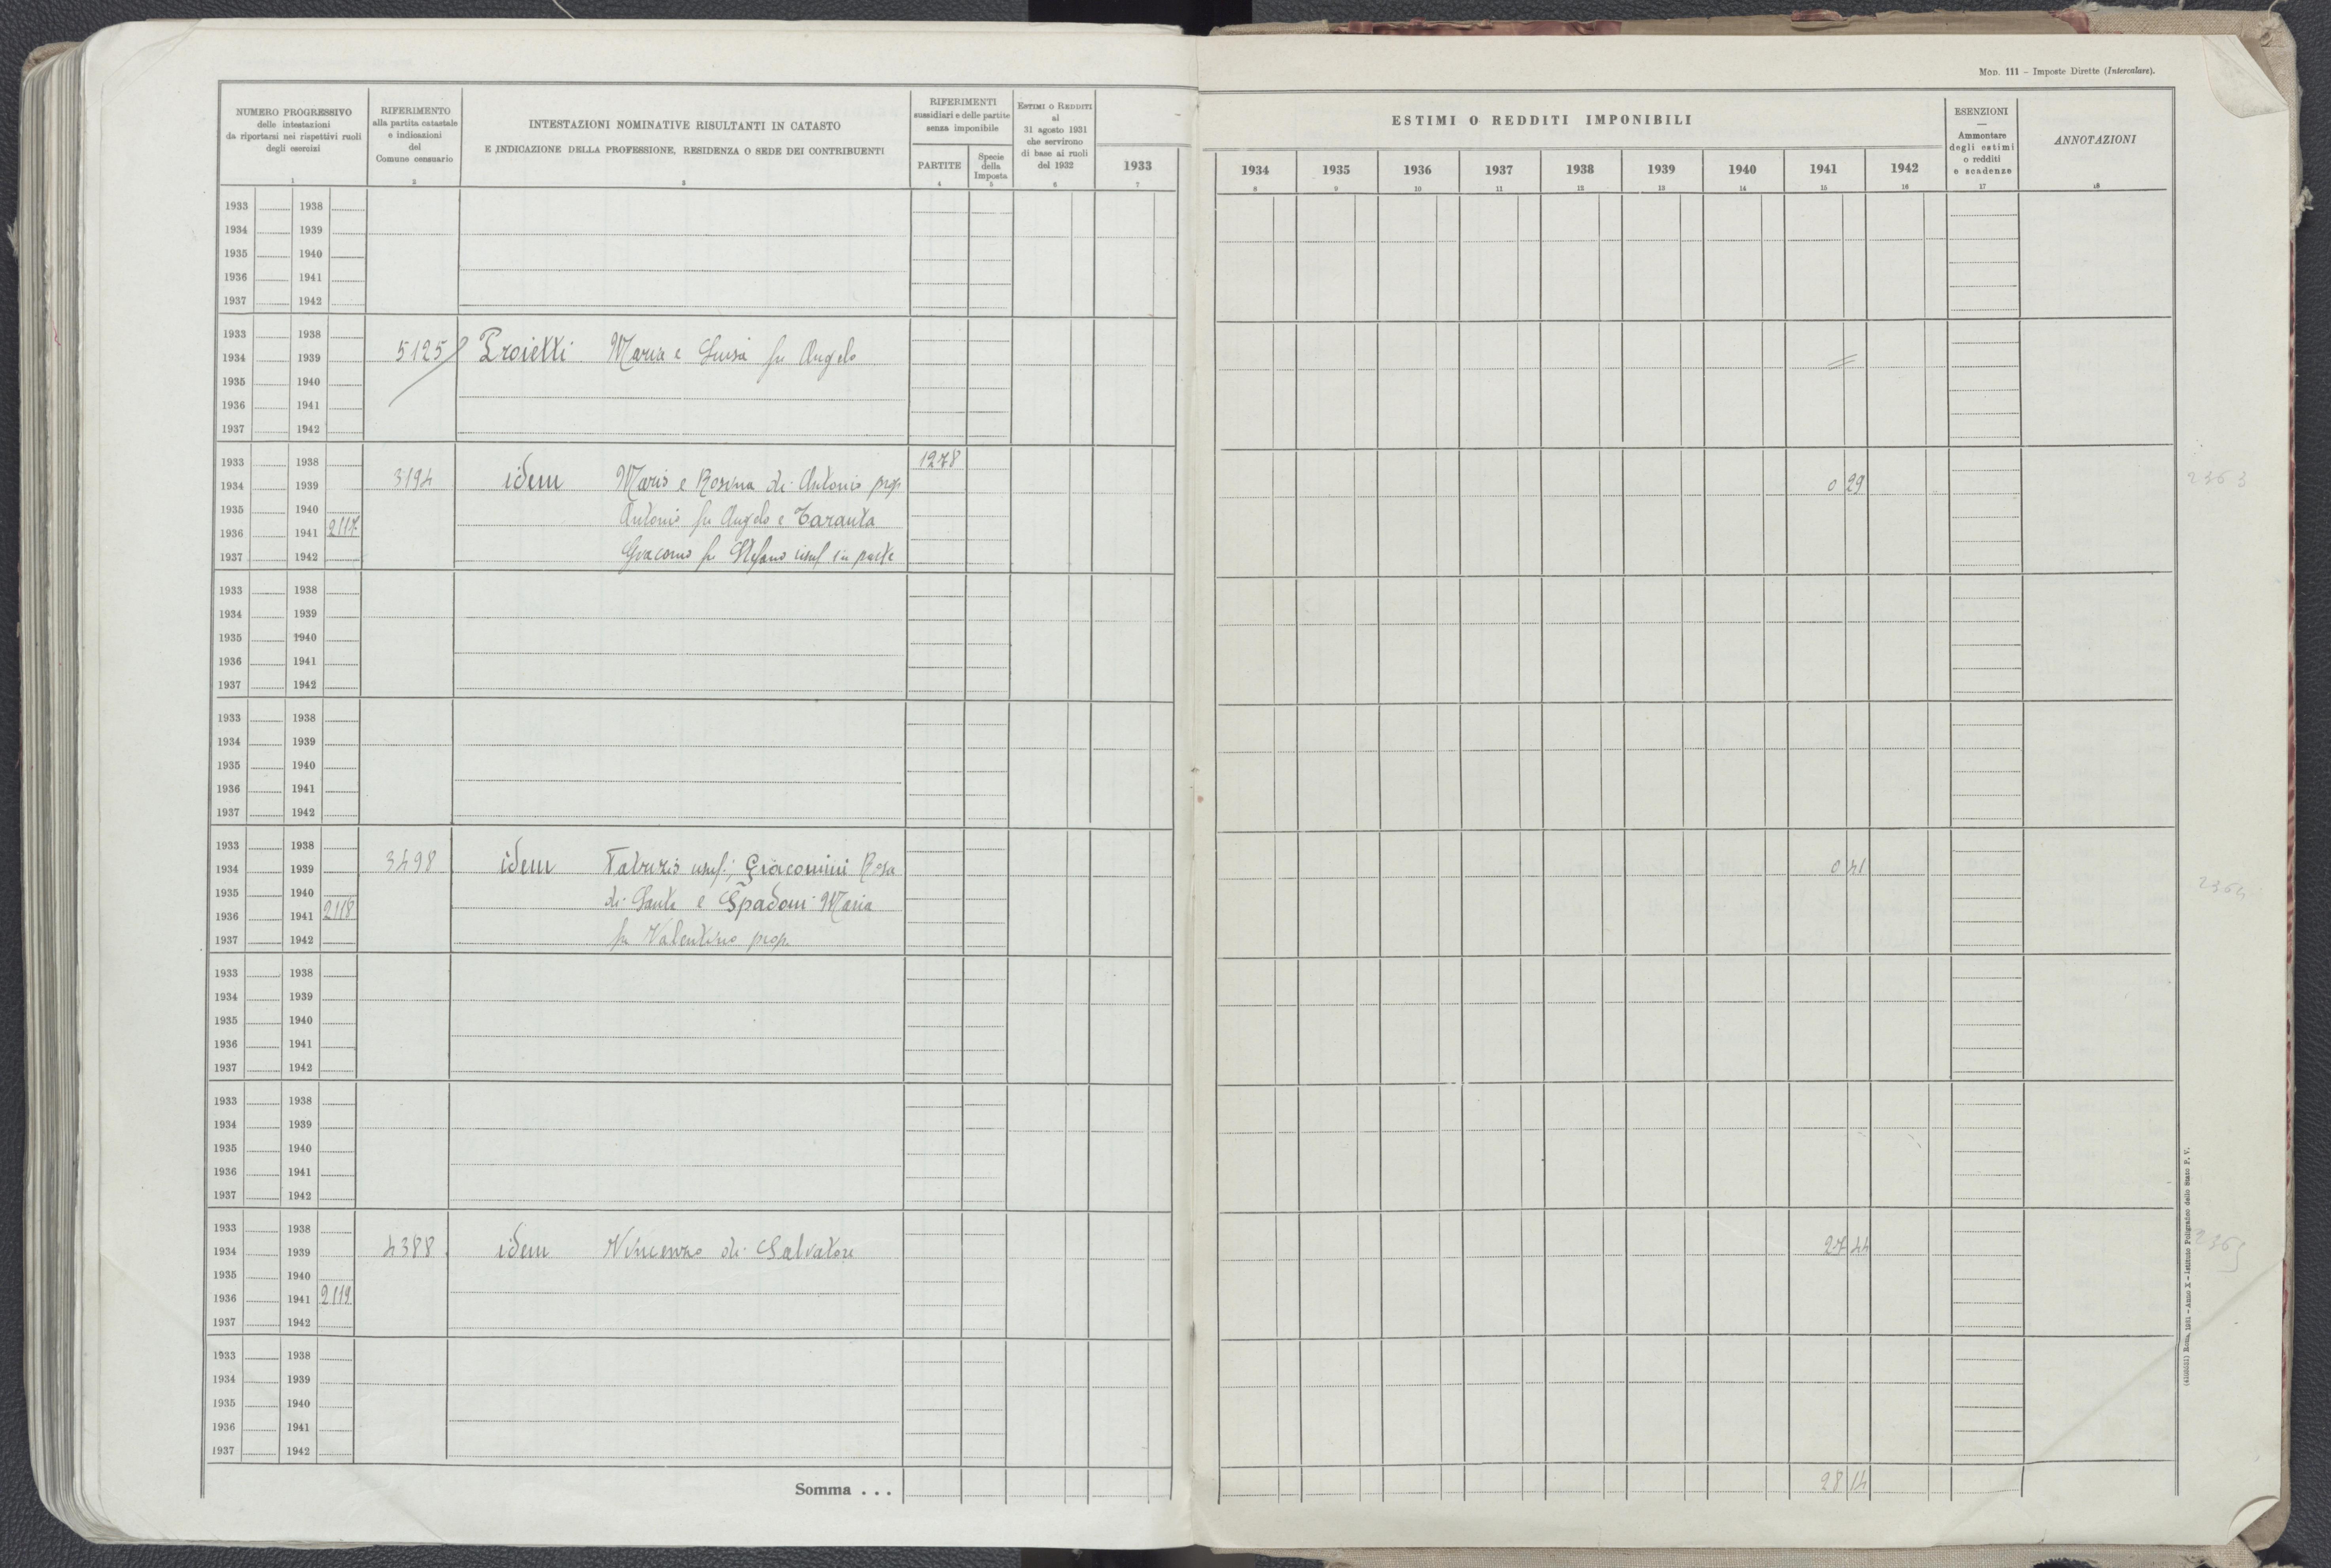 Mod. 111 - Imposte Dirette (Intercalare).
NUMERO PROGRESSIVO
delle intestazioni
da riportarsi nei rispettivi ruoli
degli esercizi
1
RIFERIMENTO
alla partita catastale
e indicazioni
del
Comune censuario
2
INTESTAZIONI NOMINATIVE RISULTANTI IN CATASTO
E INDICAZIONE DELLA PROFESSIONE, RESIDENZA O SEDE DEI CONTRIBUENTI
3
RIFERIMENTI
sussidiari e delle partite
senza imponibile
PARTITE
4
Specie
della
Imposta
5
ESTIMI O REDDITI
al
31 agosto 1931
che servirono
di base ai ruoli
del 1932
6
1933
7
ESTIMI O REDDITI IMPONIBILI
1934 1935 1936 1937 1938 1939 1940 1941 1942
8 9 10 11 12 13 14 15 16
ESENZIONI
—
Ammontare
degli estimi
o redditi
e scadenze
17
ANNOTAZIONI
18
1933 1938
1934 1939
1935 1940
1936 1941
1937 1942
1933 1938
1934 1939 5125 Proietti Maria e Luisa fu Angelo
1935 1940
1936 1941
1937 1942
1933 1938 1278
1934 1939 3194 idem Maria e Rosina di Antonio prop. 0 29 2363
1935 1940 Antonio fu Angelo e Taranta
1936 1941 2117
1937 1942 Giacomo fu Stefano usuf in parte
1933 1938
1934 1939
1935 1940
1936 1941
1937 1942
1933 1938
1934 1939
1935 1940
1936 1941
1937 1942
1933 1938
1934 1939 3498 idem Fabrizio usuf.; Giacomini Rosa 0 41 2364
1935 1940 di Sante e Spadoni Maria
1936 1941 2118
1937 1942 fu Valentino prop.
1933 1938
1934 1939
1935 1940
1936 1941
1937 1942
1933 1938
1934 1939
1935 1940
1936 1941
1937 1942
1933 1938
1934 1939 4388 idem Vincenzo di Salvatore 27 44 2365
1935 1940
1936 1941 2119
1937 1942
1933 1938
1934 1939
1935 1940
1936 1941
1937 1942
Somma . . . 28 14